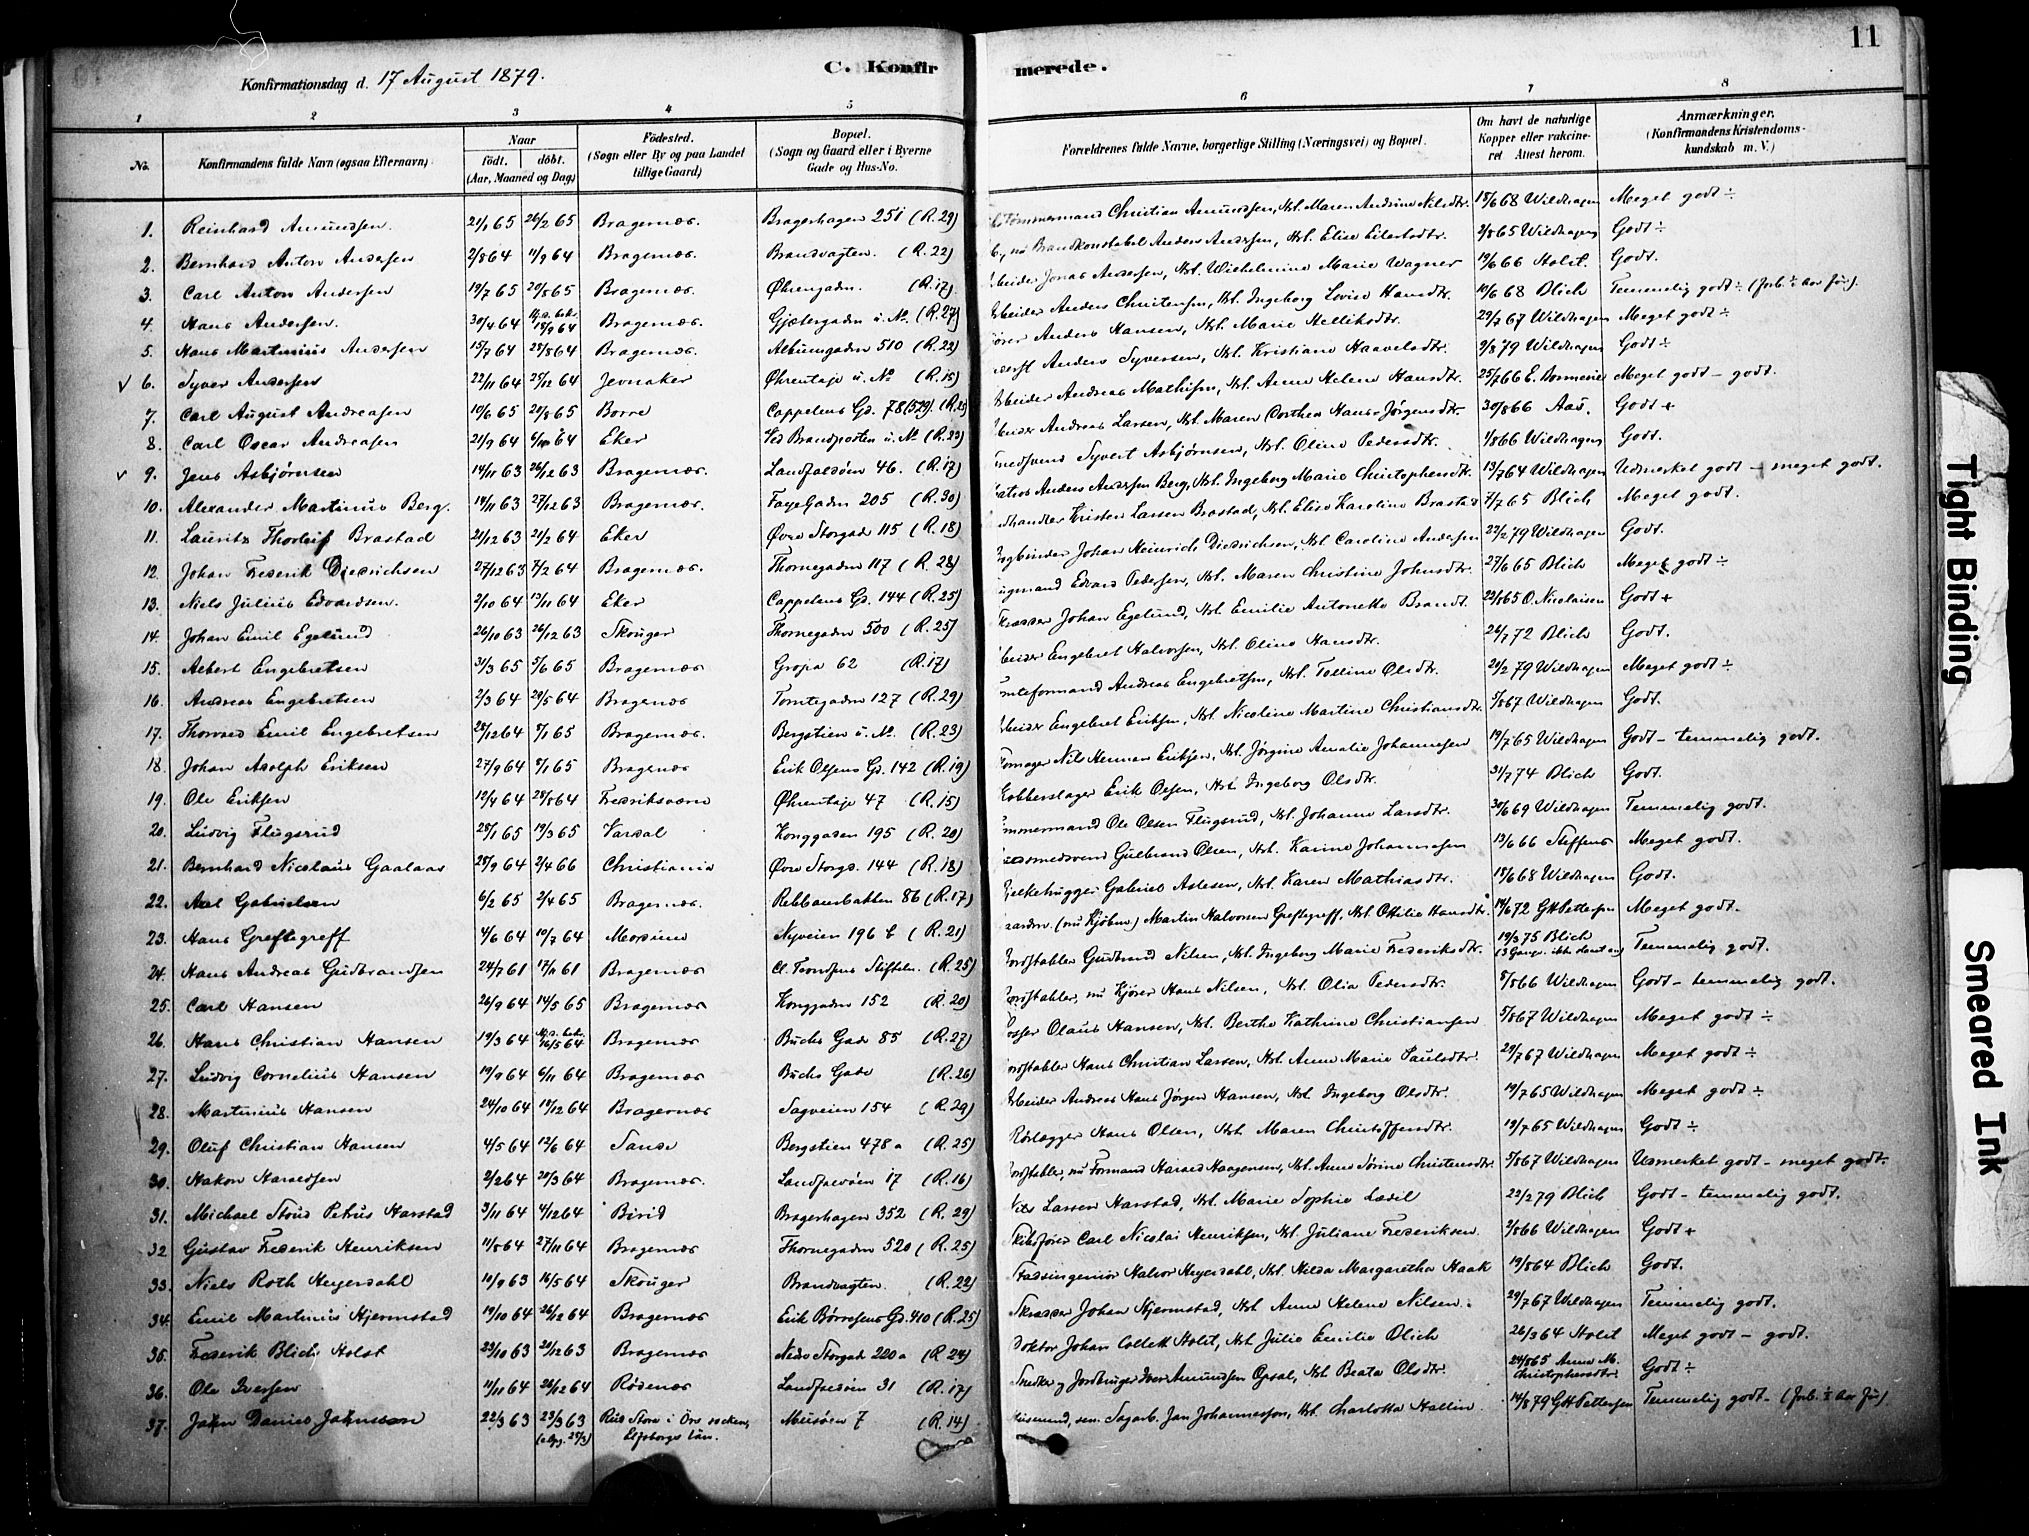 11
Konfirmationsdag d. 17 August 1879.
C. Konfir merede.
1 2 3 4 5 6 7 8
No. Konfirmandens fulde Navn (ogsaa Efternavn) Naar födt. döbt. (Aar, Maaned og Dag) Födested. (Sogn eller By og paa Landet tillige Gaard) Bopæl. (Sogn og Gaard eller i Byerne Gade og Hus-No. Forældrenes fulde Navne, borgerlige Stilling (Næringsvei) og Bopæl. Om havt de naturlige Kopper eller vakcineret Attest herom. Anmærkninger. (Konfirmandens Kristendomskundskab m. V.)
1. Reinhard Amundsen. 21/1 65 26/2 65 Bragernæs. Bragerhagen 251 (R. 29) Tømmermand Christian Amundsen, Hst. Maren Andrine Nilsdtr. 18/6 68 Wildhagen Meget godt ÷
2. Bernhard Anton Andersen 2/8 64 11/9 64 Bragernæs. Brandvagten. (R. 22) nu Brandkonstabel Anders Andersen, Hst. Elise Eilertsdtr. 2/8 65 Wildhagen Godt ÷
3. Carl Anton Andersen 19/7 65 20/8 65 Bragernæs. Øhrengaden. (R. 17) Jonas Andersen, Hst. Wilhelmine Marie Wagner 19/6 66 Holst. Godt.
4. Hans Andersen. 30/4 64 18/9 64 Bragernæs. Gjetergaden u. No. (R. 27) Anders Christensen, Hst. Ingeborg Lovise Hansdtr. 10/6 68 Blich Temmelig godt ÷ (forb. ÷ aar før).
5. Hans Martinius Andersen 15/7 64 28/8 64 Bragernæs. Albumgaden 510 (R. 22) Anders Hansen, Hst. Marie Helliksdtr. 29/7 67 Wildhagen Meget godt ÷
√ 6. Syver Andersen 22/11 64 25/12 64 Jevnaker Øhrentaje u. No (R. 15) Anders Syversen, Hst. Kristiane Haavelsdtr. 9/8 79 Wildhagen Godt ÷
7. Carl August Andreasen 10/6 65 20/8 65 Borre Cappelens Gd. 78 (529). (R. 25) Andreas Mathisen, Hst. Anne Helene Hansdtr. 25/7 66 E. Dormenie Meget godt – godt.
8. Carl Oscar Andreasen 21/9 64 6/10 64 Eker Ved Brandposten u. No (R. 22) Andreas Larsen, Hst. Maren Dorthea Hans Jørgensdtr. 30/8 66 Aas. Godt +
√ 9. Jens Asbjørnsen 14/11 63 26/12 63 Bragernæs. Landfaldøen 46. (R. 17) Syvert Asbjørnsen, Hst. Oline Pedersdtr. 1/8 66 Wildhagen Godt.
10. Alexander Martinius Berg. 14/11 63 27/12 63 Bragernæs. Faye Gaden 205 (R. 30) Anders Andersen Berg, Hst. Ingeborg Marie Christophersdtr. 13/7 64 Wildhagen Udmerket godt – meget godt.
11. Lauritz Thorleif Brastad 21/12 63 21/2 64 Eker Øvre Storgade 115 (R. 18) Kristen Larsen Brastad, Hst. Elise Karoline Brastad 7/7 65 Blich Meget godt.
12. Johan Frederik Diedrichsen 27/12 63 7/2 64 Bragernæs. Thornegaden 117 (R. 28) Johan Heinrich Diedrichsen, Hst. Caroline Andersen 22/2 79 Wildhagen Godt.
13. Niels Julius Edvardsen. 2/10 64 13/11 64 Eker Cappelens Gd. 144 (R. 25) Edvard Pedersen, Hst. Maren Christine Johnsdtr. 27/6 65 Blich Meget godt ÷
14. Johan Emil Egelund 26/10 63 26/12 63 Skouger Thornegaden 500 (R. 25) Johan Egelund, Hst. Emilie Antonette Brandt. 22/8 65 O. Nicolaisen Godt +
15. Albert Engebretsen 31/3 65 5/6 65 Bragernæs Gropa 62 (R. 17) Engebret Halvorsen, Hst. Oline Hansdtr. 24/7 72 Blich Godt.
16. Andreas Engebretsen 2/3 64 29/5 64 Bragernæs Tomtegaden 127 (R. 29) Andreas Engebretsen, Hst. Talline Olsdtr. 21/2 79 Wildhagen Meget godt ÷
17. Thorvald Emil Engebretsen 28/12 64 8/1 65 Bragernæs. Bergstien u. No. (R. 23) Engebret Eriksen, Hst. Nicoline Martine Christiansdtr. 5/8 67 Wildhagen Godt.
18. Johan Adolph Eriksen 27/9 64 8/1 65 Bragernæs Erik Olsens Gd. 142 (R. 19) Nils Herman Eriksen, Hst. Jørgine Amalie Johannesen 19/7 65 Wildhagen Godt – temmelig godt.
19. Ole Eriksen 12/4 64 28/8 64 Fredriksværn Øhrentaje 47 (R. 15) Kobberslager Erik Olsen, Hst. Ingeborg Olsdtr. 31/7 74 Blich Godt.
20. Ludvig Flugsrud 28/1 65 19/3 65 Vardal Konggaden 195 (R. 20) Ole Olsen Flugsrud, Hst. Johanne Larsdtr. 30/6 69 Wildhagen Temmelig godt.
21. Bernhard Nicolaus Gaalaas 28/9 64 2/4 66 Christiania Øvre Storgd. 144 (R. 18) Gulbrand Olsen, Hst. Karine Johannesen 13/6 66 Steffens Meget godt.
22. Axel Gabrielsen 6/2 65 2/4 65 Bragernæs. Rebbansbakken 86 (R. 17) Gabriel Aslesen, Hst. Karen Mathiasdtr. 18/6 68 Wildhagen Godt.
23. Hans Greftegreff 4/6 64 10/7 64 Modum Nyveien 196 b (R. 21) (nu Kjøbm.) Martin Halvorsen Greftegreff, Hst. Ottilie Hansdtr. 14/6 72 GH Pettersen Meget godt.
24. Hans Andreas Gudbrandsen 24/7 61 17/11 61 Bragernæs Cl. Trondsens Stiftelse. (R. 25) Gudbrand Nilsen, Hst. Ingeborg Marie Frederiksdtr. 19/3 75 Blich Temmelig godt.
25. Carl Hansen 26/9 64 14/5 65 Bragernæs Konggaden 152 (R. 20) Bordstabler, nu Kjører Hans Nilsen, Hst. Olia Pedersdtr. 8/8 66 Wildhagen Godt – temmelig godt.
26. Hans Christian Hansen 19/3 64 16/5 64 Bragernæs Buchs Gade 85 (R. 27) Olaus Hansen, Hst. Berthe Kathrine Christiansen 5/8 67 Wildhagen Meget godt ÷
27. Ludvig Cornelius Hansen 19/9 64 6/11 64 Bragernæs Buchs Gade (R. 26) Hans Christian Larsen, Hst. Anne Marie Paulsdtr. 29/7 67 Wildhagen Meget godt ÷
28. Martinius Hansen 24/10 64 18/12 64 Bragernæs Sagveien 154 (R. 29) Andreas Hans Jørgen Hansen, Hst. Ingeborg Olsdtr. 19/7 65 Wildhagen Meget godt ÷
29. Oluf Christian Hansen 4/5 64 12/6 64 Sande Bergstien 478 a (R. 25) Rørlægger Hans Olsen, Hst. Maren Christoffersdtr. 19/7 65 Wildhagen Godt ÷
30. Hakon Haraldsen 2/2 64 28/3 64 Bragernæs. Landfaldøen 17 (R. 16) Bordstabler, nu Formand Harald Haagensen, Hst. Anne Sørine Christensdtr. 5/8 67 Wildhagen Udmerket godt – meget godt.
31. Michael Stoud Petrus Harstad 3/11 64 4/12 64 Birid Bragerhagen 352 (R. 29) Nils Larsen Harstad, Hst. Marie Sophie Ladil 22/2 79 Blich Godt – temmelig godt.
32. Gustav Frederik Henriksen 11/8 64 27/11 64 Bragernæs Thornegaden 520 (R. 25) Skibsfører Carl Nicolai Henriksen, Hst. Juliane Frederiksen 2/8 66 Wildhagen Godt +
33. Niels Roth Heyerdahl 10/9 63 16/5 64 Skouger Brandvagten. (R. 22) Stadsingeniør Halvor Heyerdahl, Hst. Hilda Margaretha Haak 19/8 64 Blich Godt.
34. Emil Martinius Hjermstad 19/10 64 26/12 64 Bragernæs Erik Børresens Gd. 410 (R. 25) Skrædder Johan Hjermstad, Hst. Anne Helene Nilsen. 29/7 67 Wildhagen Temmelig godt.
35. Frederik Blich Holst 23/10 63 21/12 63 Bragernæs Nedre Storgade 220 a (R. 24) Doktor Johan Collett Holst, Hst. Julie Emilie Blich 26/3 64 Holst Meget godt – godt.
36. Ole Iversen 11/11 64 26/12 64 Rødenæs Landfaldøen 31 (R. 17) Snedker og Jordbruger Iver Amundsen Opsal, Hst. Beata Olsdtr. 24/8 65 Anne M. Christophersdtr. Godt ÷
37. Johan Daniel Johansson 22/3 63 23/3 63 Rud Stora i Örs socken, Elfsborgs län. Meisøen 7 (R. 14) Jan Johannesson, Hst. Charlotta Hallin 14/8 79 GH Pettersen Temmelig godt – (forb. ÷ aar før)
Tight Binding
Smeared Ink